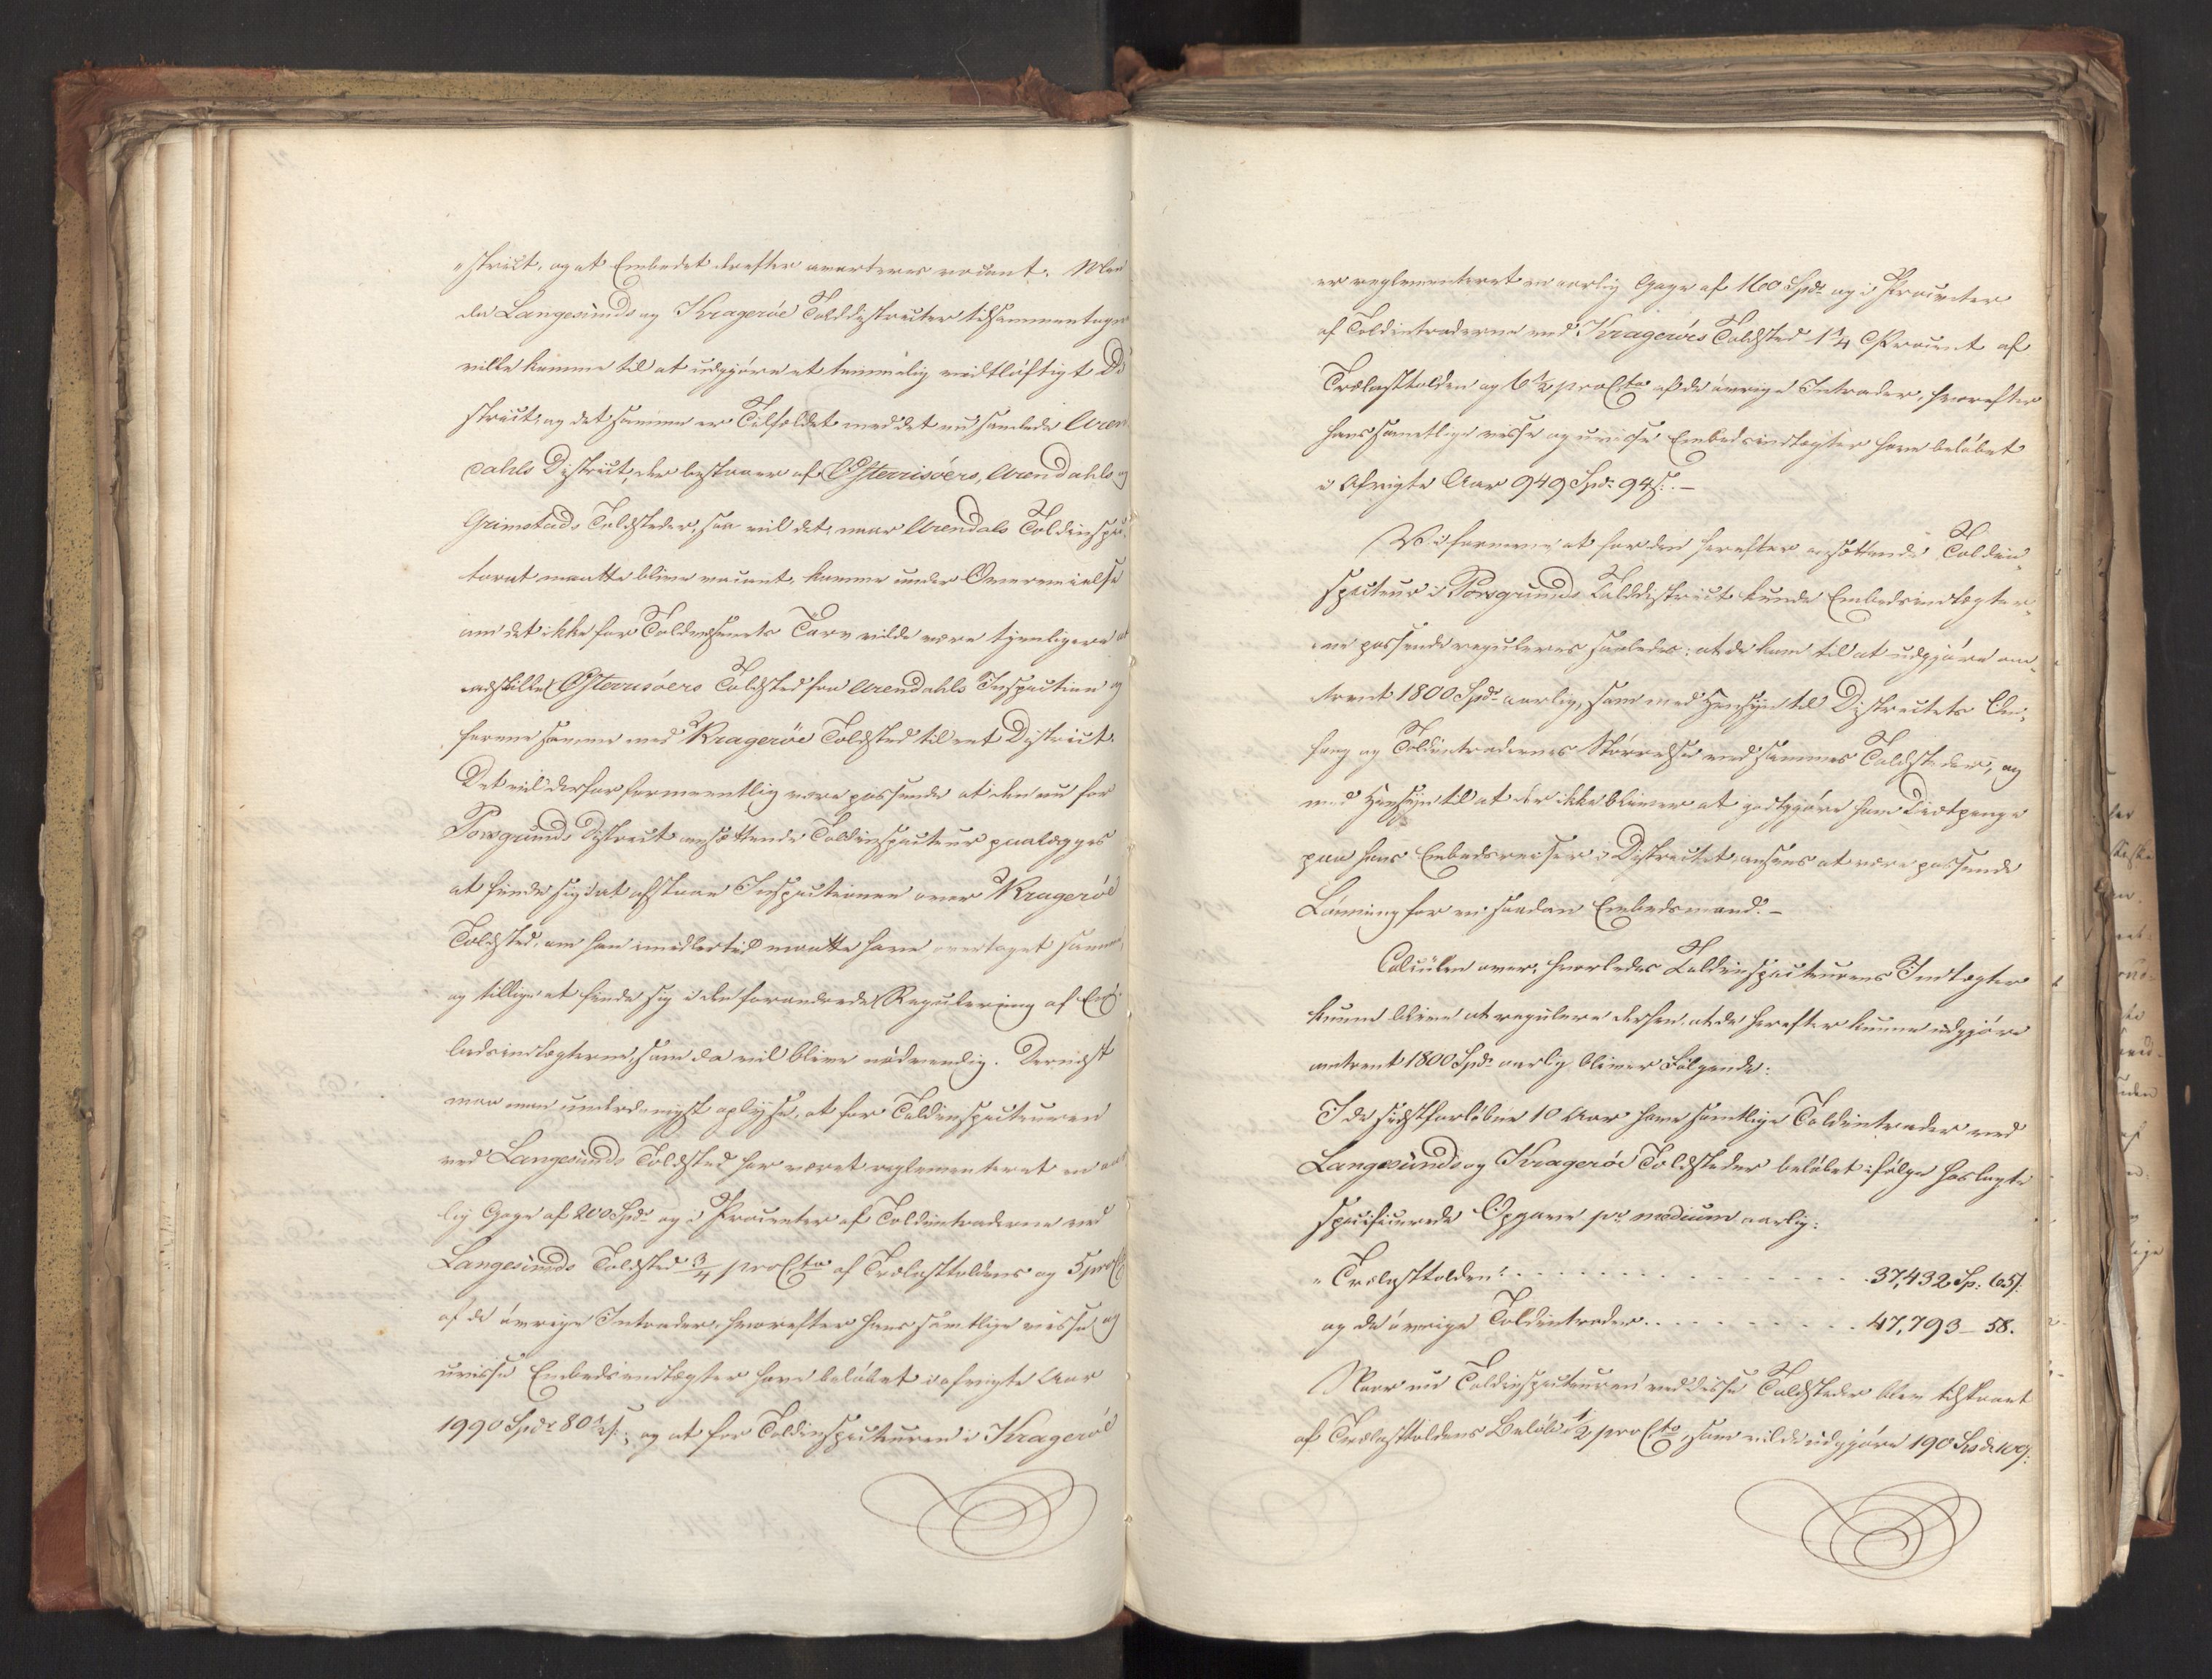 „strict, og at Embedet derefter averteres vacant. Men
da Langesunds og Kragerøe Tolddistricter tilsammentagne
ville komme til at udgjøre et temmelig vidtløftigt Di
strict, og det samme er Tilfældet med det nu samlede Aren
dahls District, der bestaaer af Østerrisøers, Arendahls og
Grimstads Toldsteder, saa vil det, naar Arendals Toldinspec
torat maatte blive vacant, komme under Overveielse
om det ikke for Toldvæsenets Tarv vilde være tjenligere at
adskille Østerrisøers Toldsted fra Arendahls Inspection og
forene samme med Kragerøe Toldsted til eet District.
Det vil derfor formeentlig være passende at den nu for
Porsgrunds District ansættende Toldinspecteur paalægges
at finde sig i at afstaae Inspectionen over Kragerøe
Toldsted, om han imidlertid maatte have overtaget samme,
og tillige at finde sig i den forandrede Regulering af Em
bedsindtægterne, som da vil blive nødvendig. Dernæst
maa man underdanigst oplyse, at for Toldinspecteuren
ved Langesunds Toldsted har været reglementeret en aar
lig Gage af 200 Spdr og i Procenter af Toldintraderne ved
Langesunds Toldsted 3/4 pro Cto af Trælasttoldens og 5 pro Ct
af de øvrige Intrader, hvorefter hans samtlige visse og
uvisse Embedsindtægter have beløbet i afvigte Aar
1990 Spdr 80 1/2 s.; og at for Toldinspecteuren i Kragerøe
er reglementeret en aarlig Gage af 160 Spdr og i Procenter
af Toldintraderne ved Kragerøes Toldsted 1 1/4 Procent af
Trælasttolden og 6 1/2 pro Cto af de øvrige Intrader, hvorefter
hans samtlige visse og uvisse Embedsindtægter have beløbet
i Afvigte Aar 949 Spdr 94 s. –
Vi formene, at for den herefter ansættende Toldin„
specteur i Porsgrunds Tolddistrict kunde Embedsindtægter„
ne passende reguleres saaledes: at de kom til at udgjøre om„
trent 1800 Spdr aarlig, som med Hensyn til Districtets Om„
fang og Toldintradernes Størrelse ved sammes Toldsteder, og
med Hensyn til at der ikke bliver at godtgjøre ham Diætpenge
paa hans Embedsreiser i Districtet, ansees at være passende
Lønning for en saadan Embedsmand. –
Calculen over, hvorledes Toldinspecteurens Indtægter
kunne blive at regulere derhen, at de herefter kunne udgjøre
omtrent 1800 Spdr aarlig bliver Følgende:
I de sidstforløbne 10 Aar have samtlige Toldintrader ved
Langesunds og Kragerøe Toldsteder beløbet ifølge hoslagte
specificerede Opgave pr medium aarlig:
„ Trælasttolden . . . . . . . . . . . . . . . 37,432 Sp: 65 s.
og de øvrige Toldintrader . . . . . . . . . . 47,793 – 58.
Naar nu Toldinspecteuren ved disse Toldsteder blev tilstaaet
af Trælasttoldens Beløb 1/2 pro Cto, som vilde udgjøre 190 Spdr